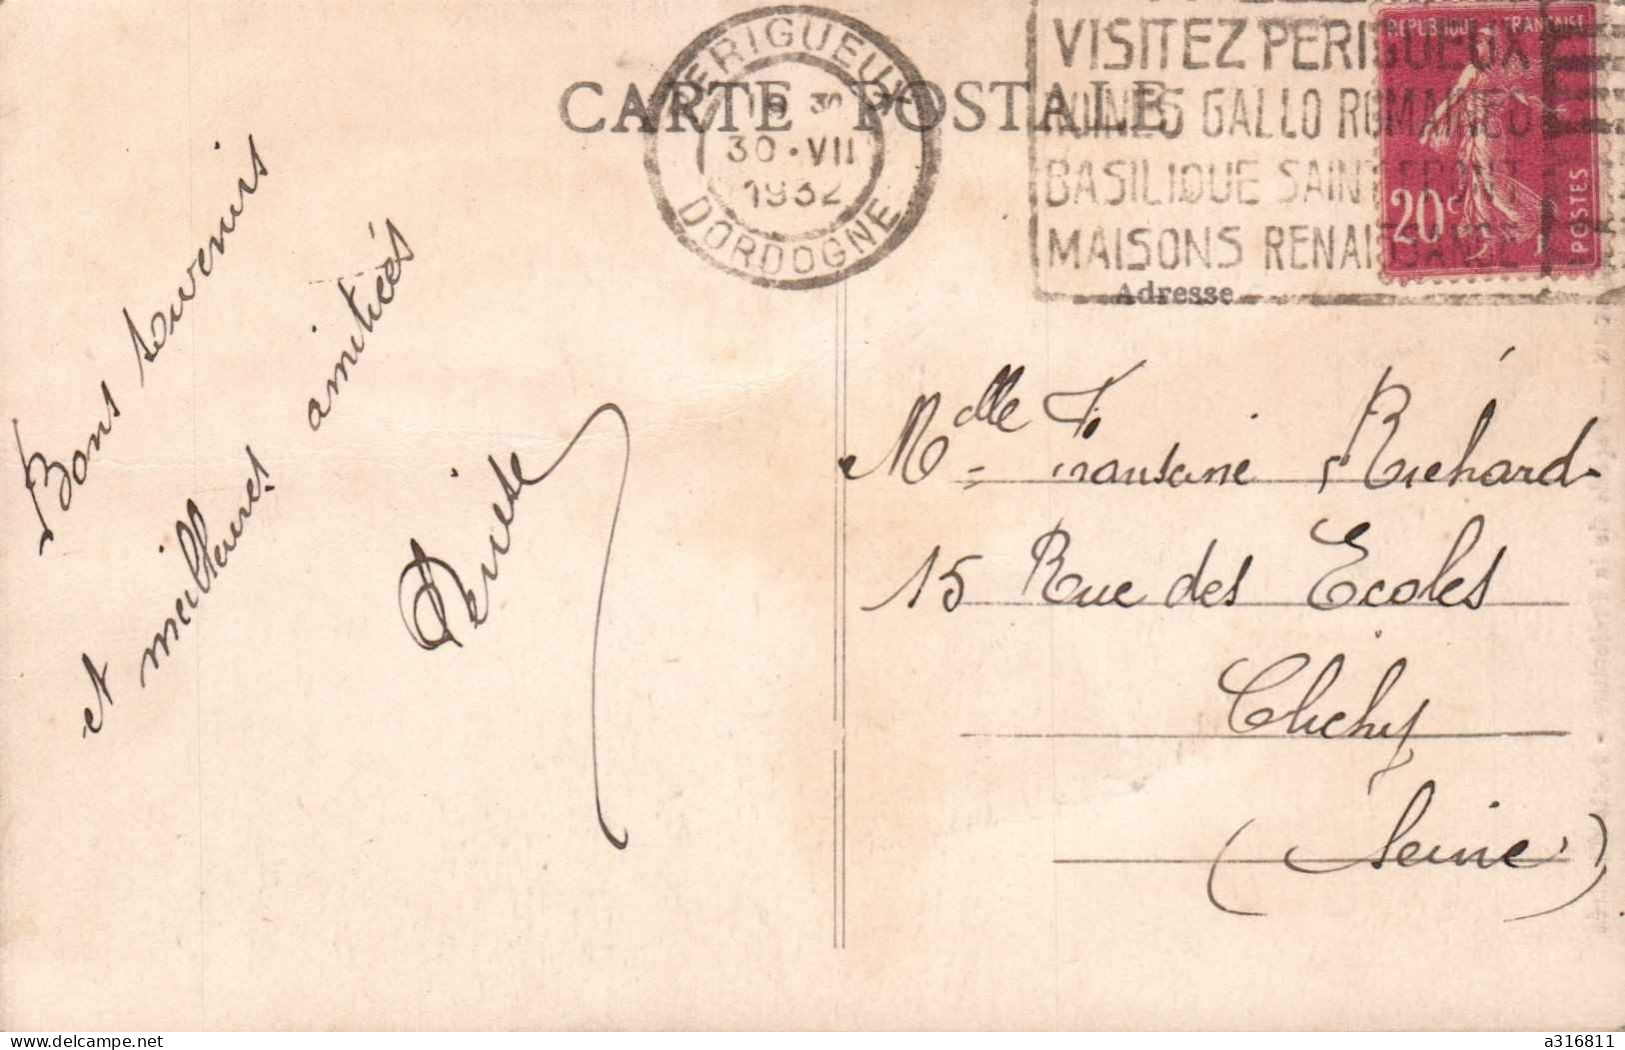 CARTE POSTALE
PERIGUEUX
18 30
30 · VII
1932
DORDOGNE
VISITEZ PERIGUEUX
RUINES GALLO ROMAINES
BASILIQUE SAINT FRONT
MAISONS RENAISSANCE
REPUBLIQUE FRANÇAISE
20c
POSTES
Adresse
Bons souvenirs
et meilleures amitiés
Denise
Mdlle Richard
15 Rue des Ecoles
Clichy
(Seine)
www.delcampe.net
a316811